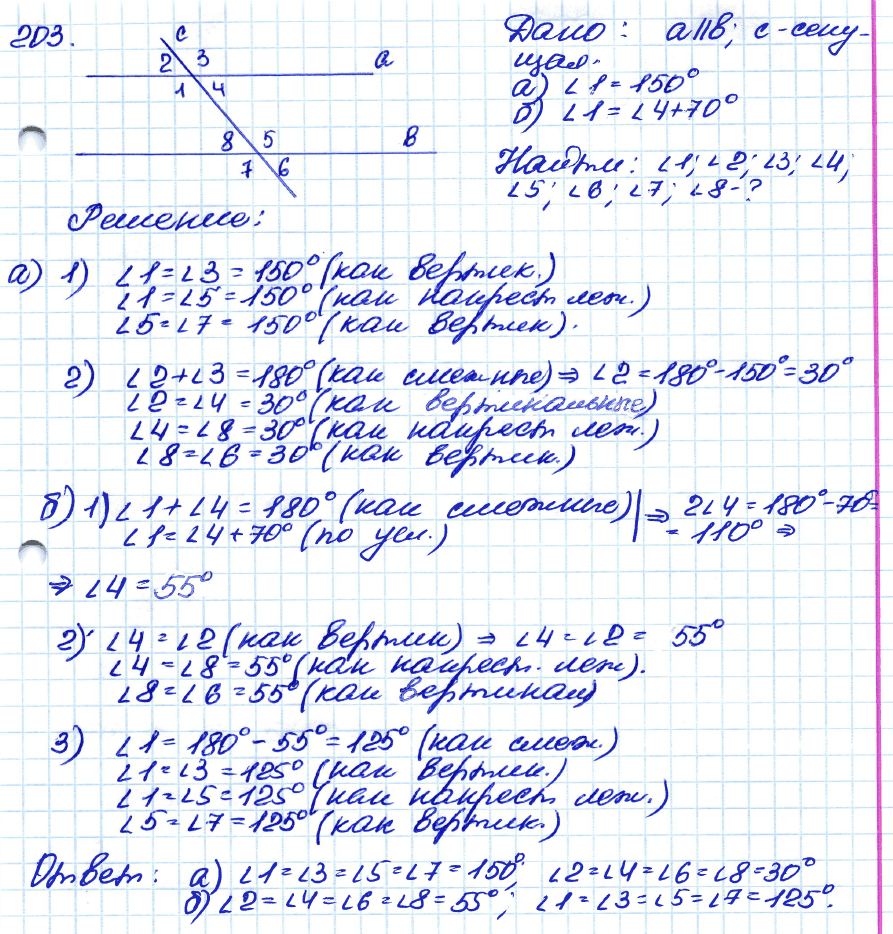 203.
c
2 3 a
1 4
8 5 в
7 6
Дано: a∥в; c-секу-
щая.
а) ∠1=150°
б) ∠1=∠4+70°
Найти: ∠1; ∠2; ∠3; ∠4;
∠5; ∠6; ∠7; ∠8-?
Решение:
а) 1) ∠1=∠3=150° (как вертик.)
∠1=∠5=150° (как накрест леж.)
∠5=∠7=150° (как вертик).
2) ∠2+∠3=180° (как смежные) ⇒ ∠2=180°-150°=30°
∠2=∠4=30° (как вертикальные)
∠4=∠8=30° (как накрест леж.)
∠8=∠6=30° (как вертик.)
б) 1) ∠1+∠4=180° (как смежные) | ⇒ 2∠4=180°-70°=
∠1=∠4+70° (по усл.) | =110° ⇒
⇒ ∠4=55°
2) ∠4=∠2 (как вертик) ⇒ ∠4=∠2= 55°
∠4=∠8=55° (как накрест. леж).
∠8=∠6=55° (как вертикал)
3) ∠1=180°-55°=125° (как смеж.)
∠1=∠3=125° (как вертик.)
∠1=∠5=125° (как накрест леж.)
∠5=∠7=125° (как вертик.)
Ответ: а) ∠1=∠3=∠5=∠7=150°; ∠2=∠4=∠6=∠8=30°
б) ∠2=∠4=∠6=∠8=55°; ∠1=∠3=∠5=∠7=125°.